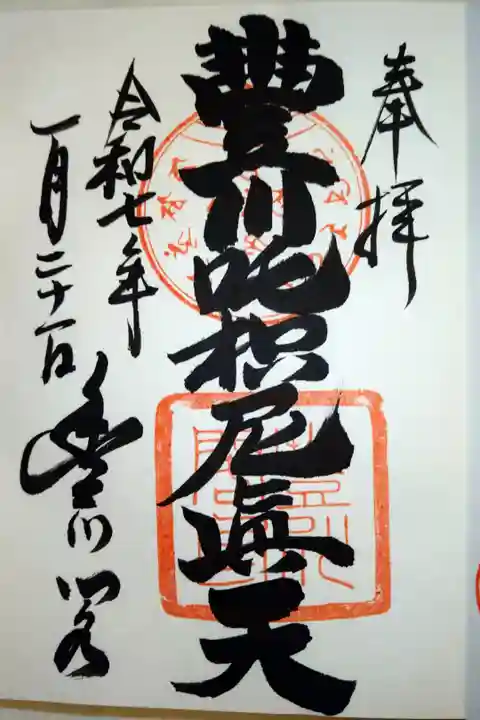 奉拝
豊川吒枳尼眞天
令和七年
一月二十一日
豊川閣